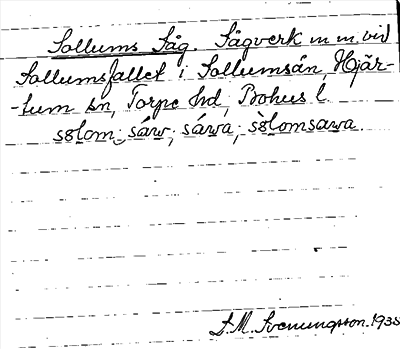 Sollums Såg. Sågverk m m vid
Sollumsfallet i Sollumsån, Hjär-
-tum sn, Torpe hd, Bohus l.
sølom; sáw; sáwa; sølomsawa.
S.M. Svenungsson. 1935